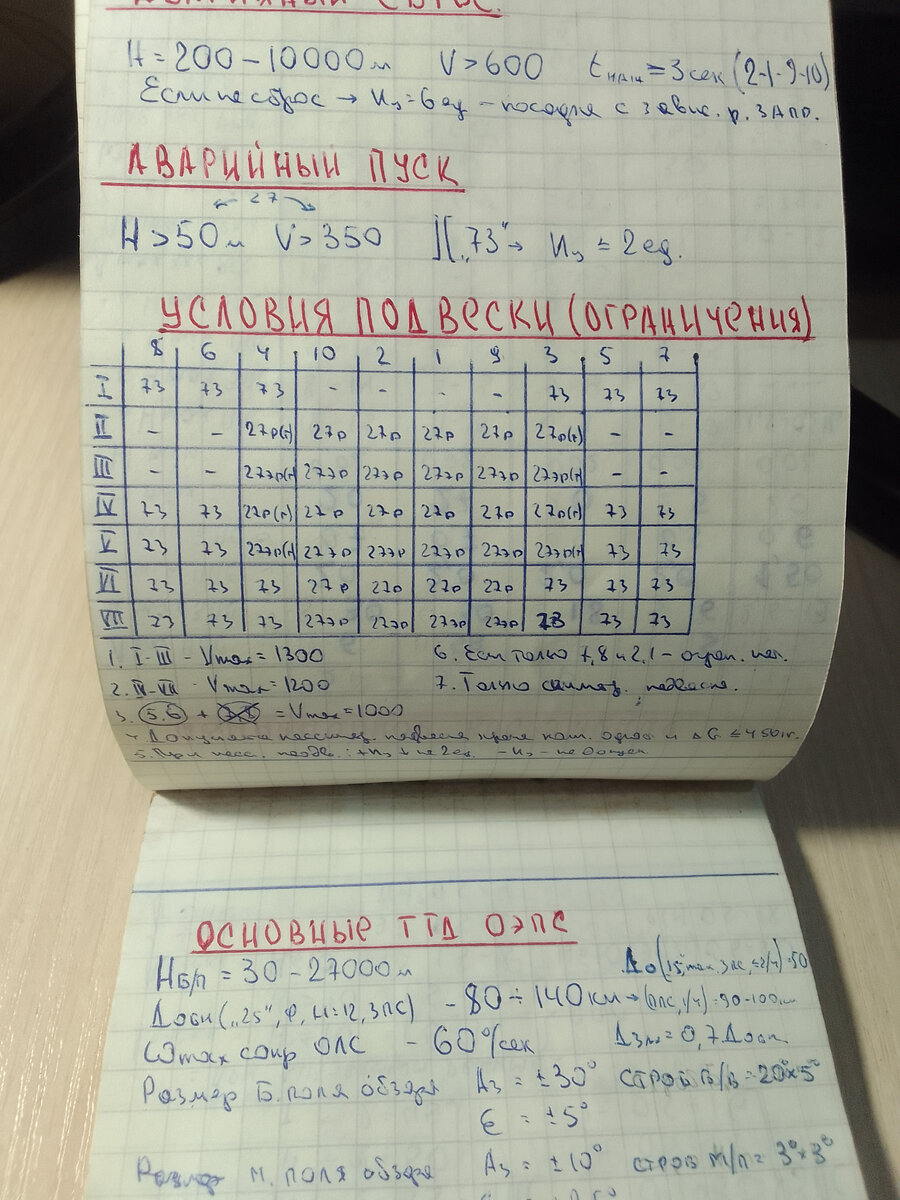 H = 200 – 10000 м V > 600 t мин = 3 сек (2-1-9-10)
Если не сброс → ny = 6 ед – посадка с завис. р. ЗАПР.
АВАРИЙНЫЙ ПУСК
27
H > 50 м V > 350 ][ „73" → ny ≤ 2 ед.
УСЛОВИЯ ПОДВЕСКИ (ОГРАНИЧЕНИЯ)
8 6 4 10 2 1 9 3 5 7
I 73 73 73 - - - - 73 73 73
II - - 27р(т) 27р 27р 27р 27р 27р(т) - -
III - - 27эр(т) 27эр 27эр 27эр 27эр 27эр(т) - -
IV 73 73 27р(т) 27р 27р 27р 27р 27р(т) 73 73
V 73 73 27эр(т) 27эр 27эр 27эр 27эр 27эр(т) 73 73
VI 73 73 73 27р 27р 27р 27р 73 73 73
VII 73 73 73 27эр 27эр 27эр 27эр 73 73 73
1. I-III - Vmax = 1300 6. Если только 7,8 и 2,1 – огран. нет.
2. IV-VII - Vmax = 1200 7. Только симмет. подвеска.
3. (5.6) + = Vmax = 1000
4. Допускается подвеска кроме одной и ΔG ≤ 450 кг.
5. При подв.: +ny ↓ на 2 ед. -ny - не допуск.
ОСНОВНЫЕ ТТД ОЭПС
Hб/п = 30 – 27000 м До (15, max, ЗПС, 1/4) = 50
Добн („25", Ф, H=12, ЗПС) – 80 ÷ 140 км → (ППС, 1/4) = 90-100 км
ωmax сопр ОЛС – 60°/сек Дзах = 0,7 Добн
Размер Б. поля обзора Аз = ±30° СТРОБ Б/П = 20°×5°
ε = ±5°
Размер М. поля обзора Аз = ±10° СТРОБ М/П = 3°×3°